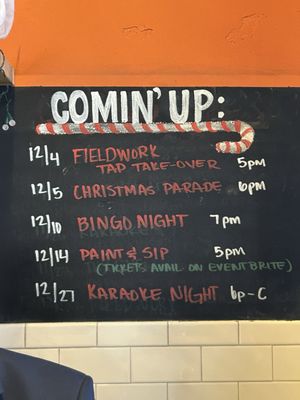 COMIN' UP:
12/4 FIELDWORK
TAP TAKE-OVER 5pm
12/5 CHRISTMAS PARADE 6pm
12/10 BINGO NIGHT 7pm
12/14 PAINT & SIP 5pm
(TICKETS AVAIL ON EVENTBRITE)
12/27 KARAOKE NIGHT 6p-C